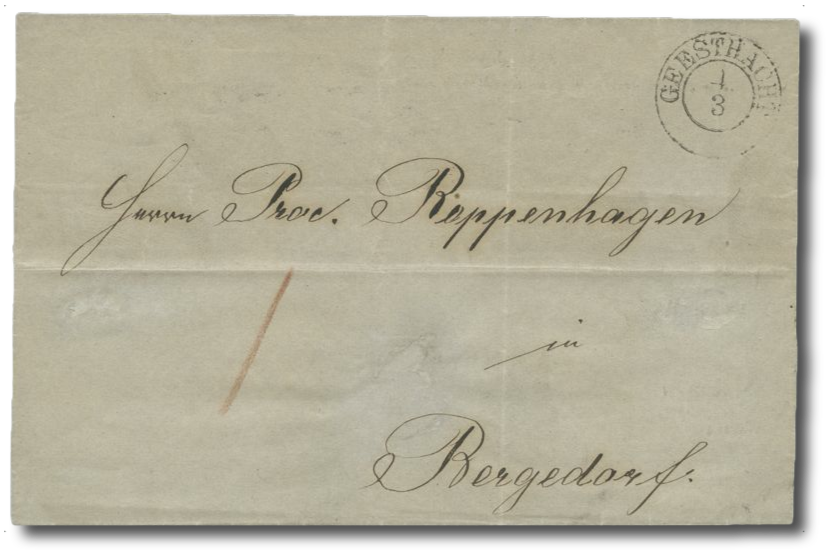 GEESTHACHT
1
3
Herrn Proc. Roppenhagen
in
Bergedorf.